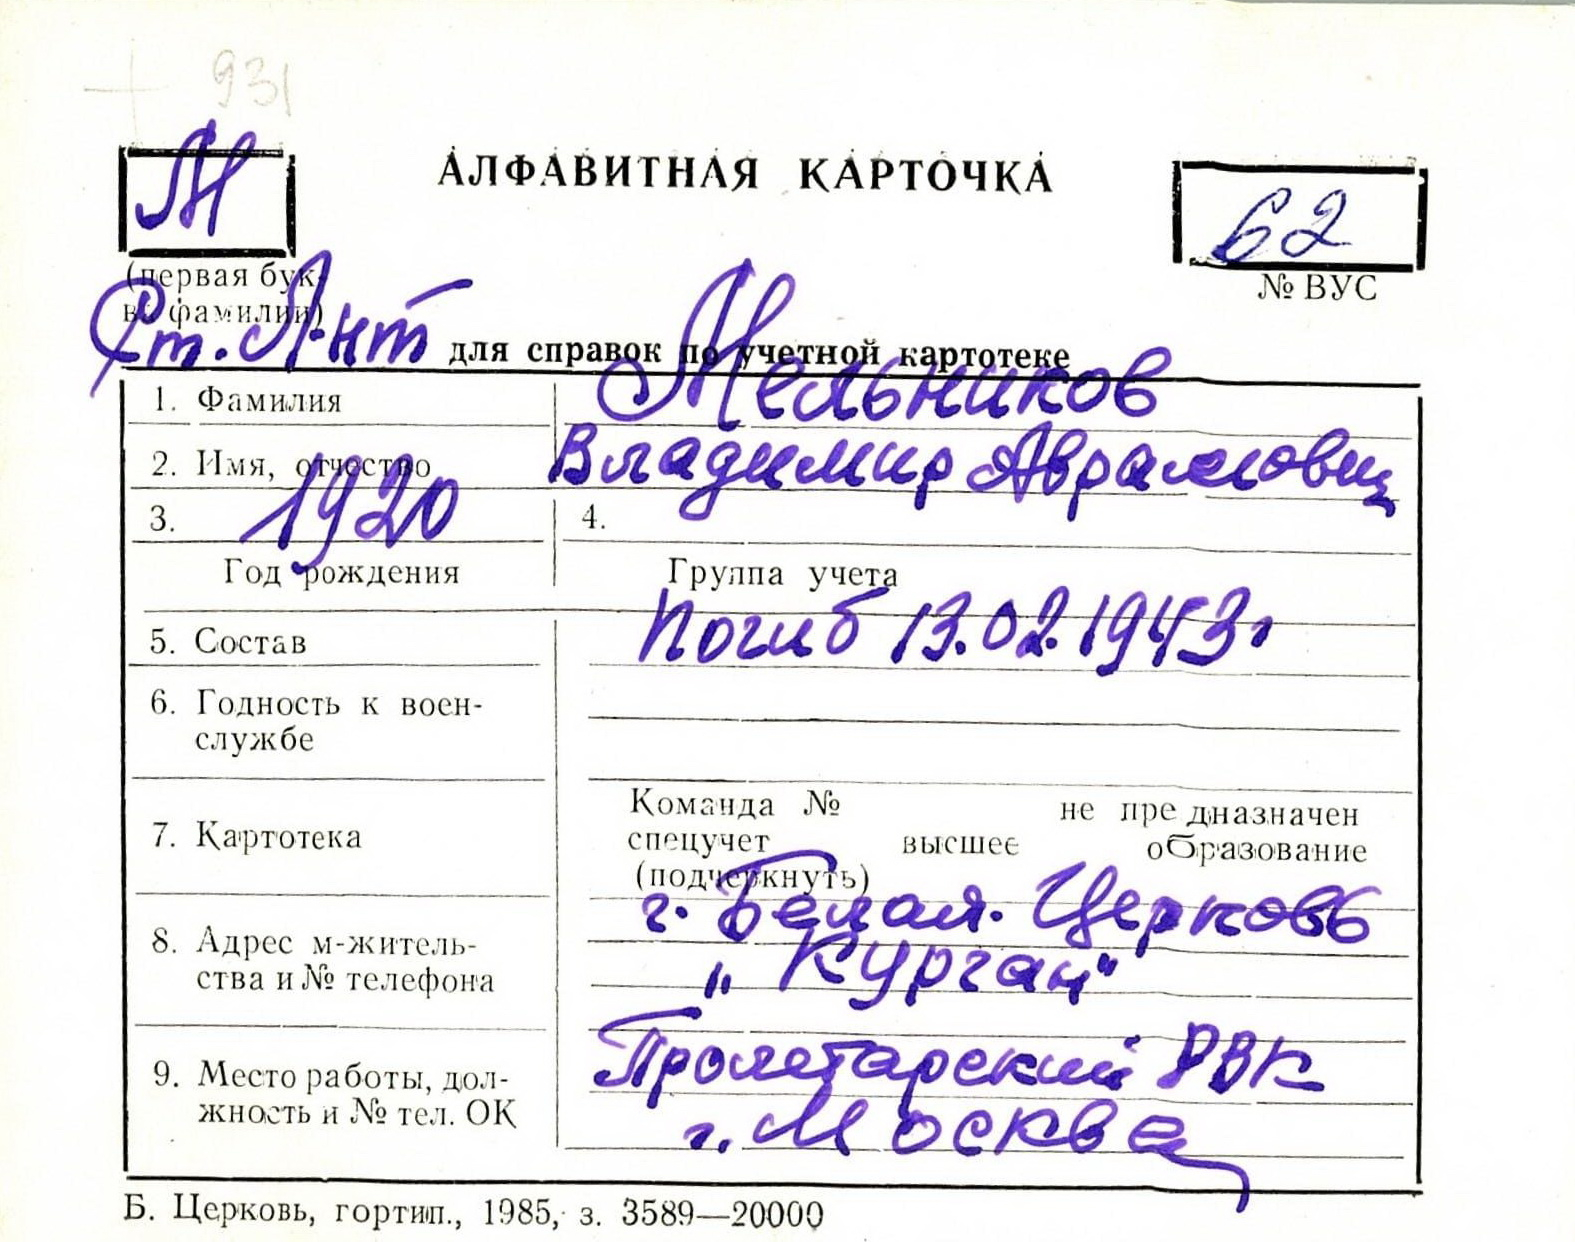 931
М
АЛФАВИТНАЯ КАРТОЧКА
62
(первая бук-
ва фамилии)
№ ВУС
Ст. Л-нт для справок по учетной картотеке
1. Фамилия Мельников
2. Имя, отчество Владимир Аврамович
3. 1920 4.
Год рождения Группа учета
5. Состав Погиб 13.02.1943г
6. Годность к воен-
службе
7. Картотека
Команда № не предназначен
спецучет высшее образование
(подчеркнуть)
8. Адрес м-житель-
ства и № телефона
г. Белая. Церковь
„Курган"
9. Место работы, дол-
жность и № тел. ОК
Пролетарский РВК
г. Москва
Б. Церковь, гортип., 1985, з. 3589—20000